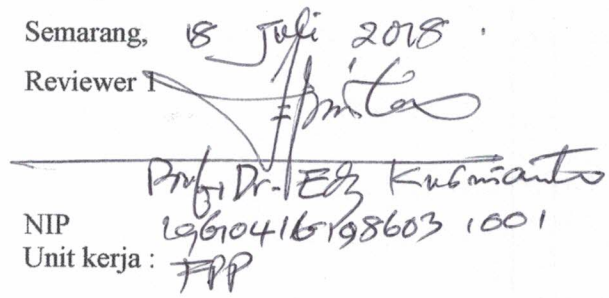 Semarang, 18 Juli 2018
Reviewer 1
Prof. Dr. Edy Kusmianto
NIP 19610416198603 1001
Unit kerja : FPP